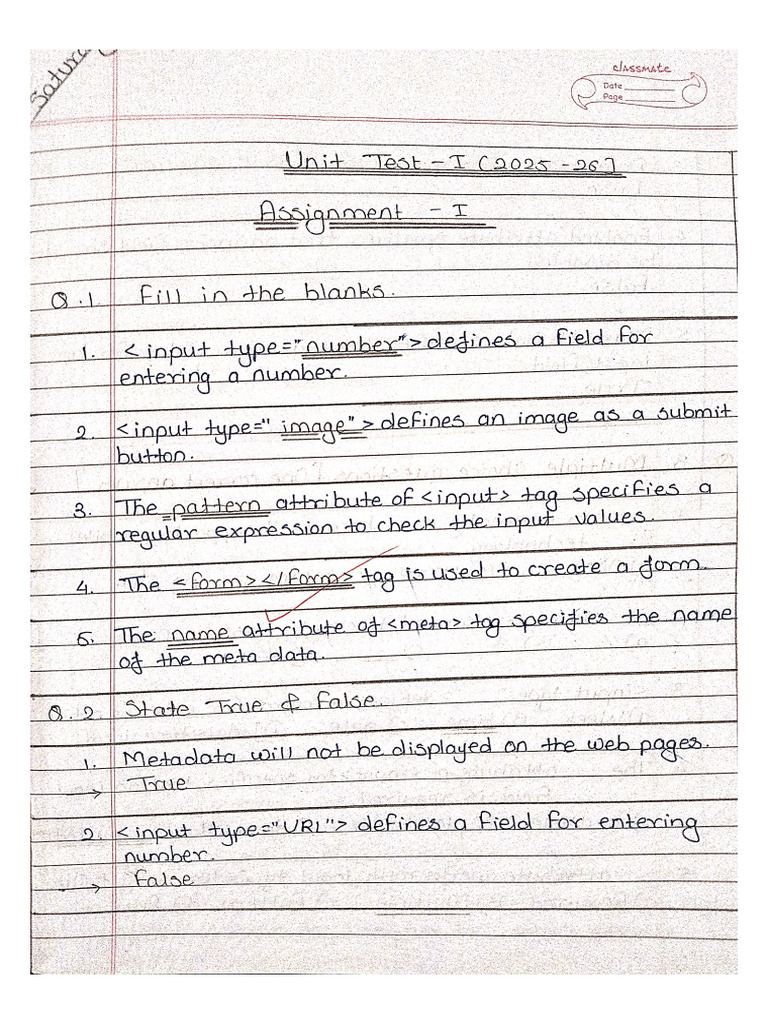 Satur
classmate
Date
Page
Unit Test - I (2025 - 26]
Assignment - I
Q.1 Fill in the blanks.
1. <input type="number"> defines a field for
entering a number.
2. <input type="image"> defines an image as a submit
button.
3. The pattern attribute of <input> tag specifies a
regular expression to check the input values.
4. The <form></form> tag is used to create a form.
5. The name attribute of <meta> tag specifies the name
of the meta data.
Q.2 State True & False.
1. Metadata will not be displayed on the web pages.
→ True
2. <input type="URL"> defines a field for entering
number.
→ False